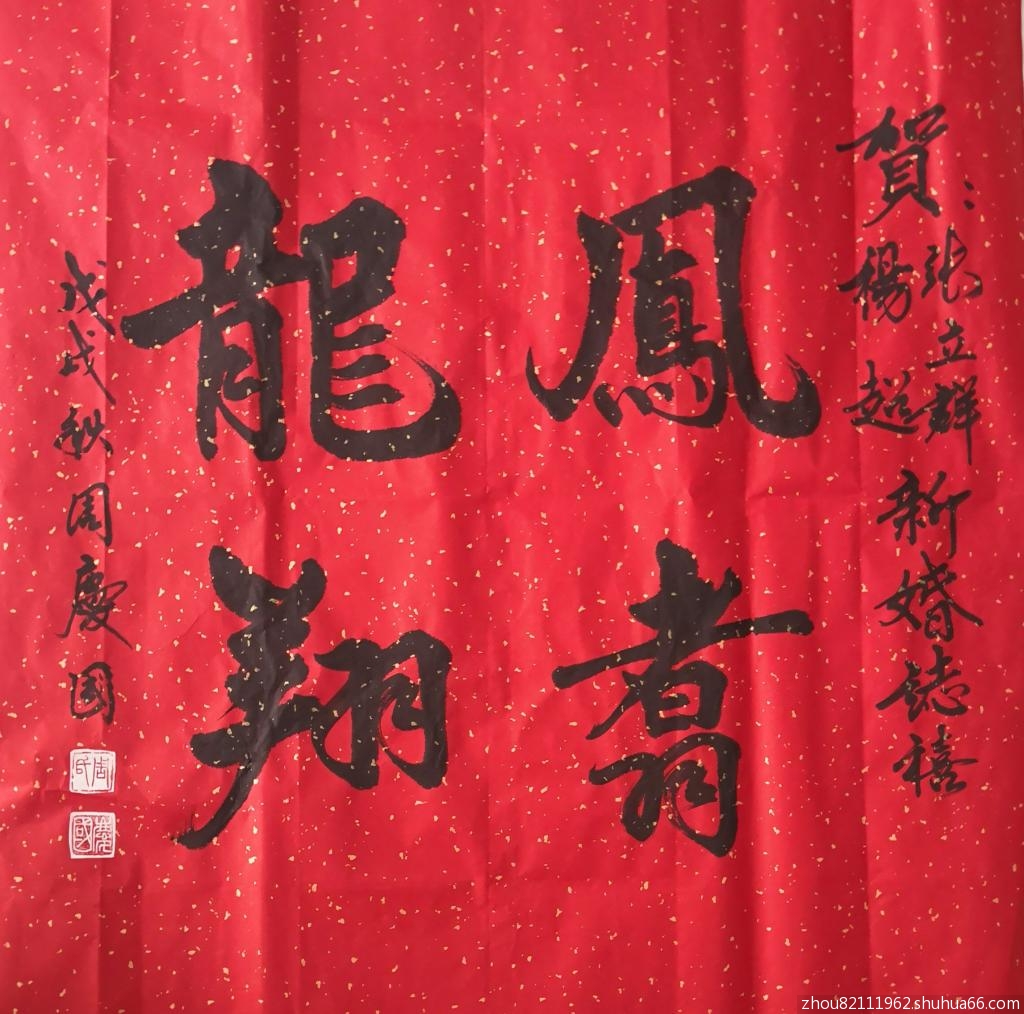 賀：
张立群
楊超
新婚誌禧
鳳翥
龍翔
戊戌秋周慶国
周氏
慶國
zhou82111962.shuhua66.com